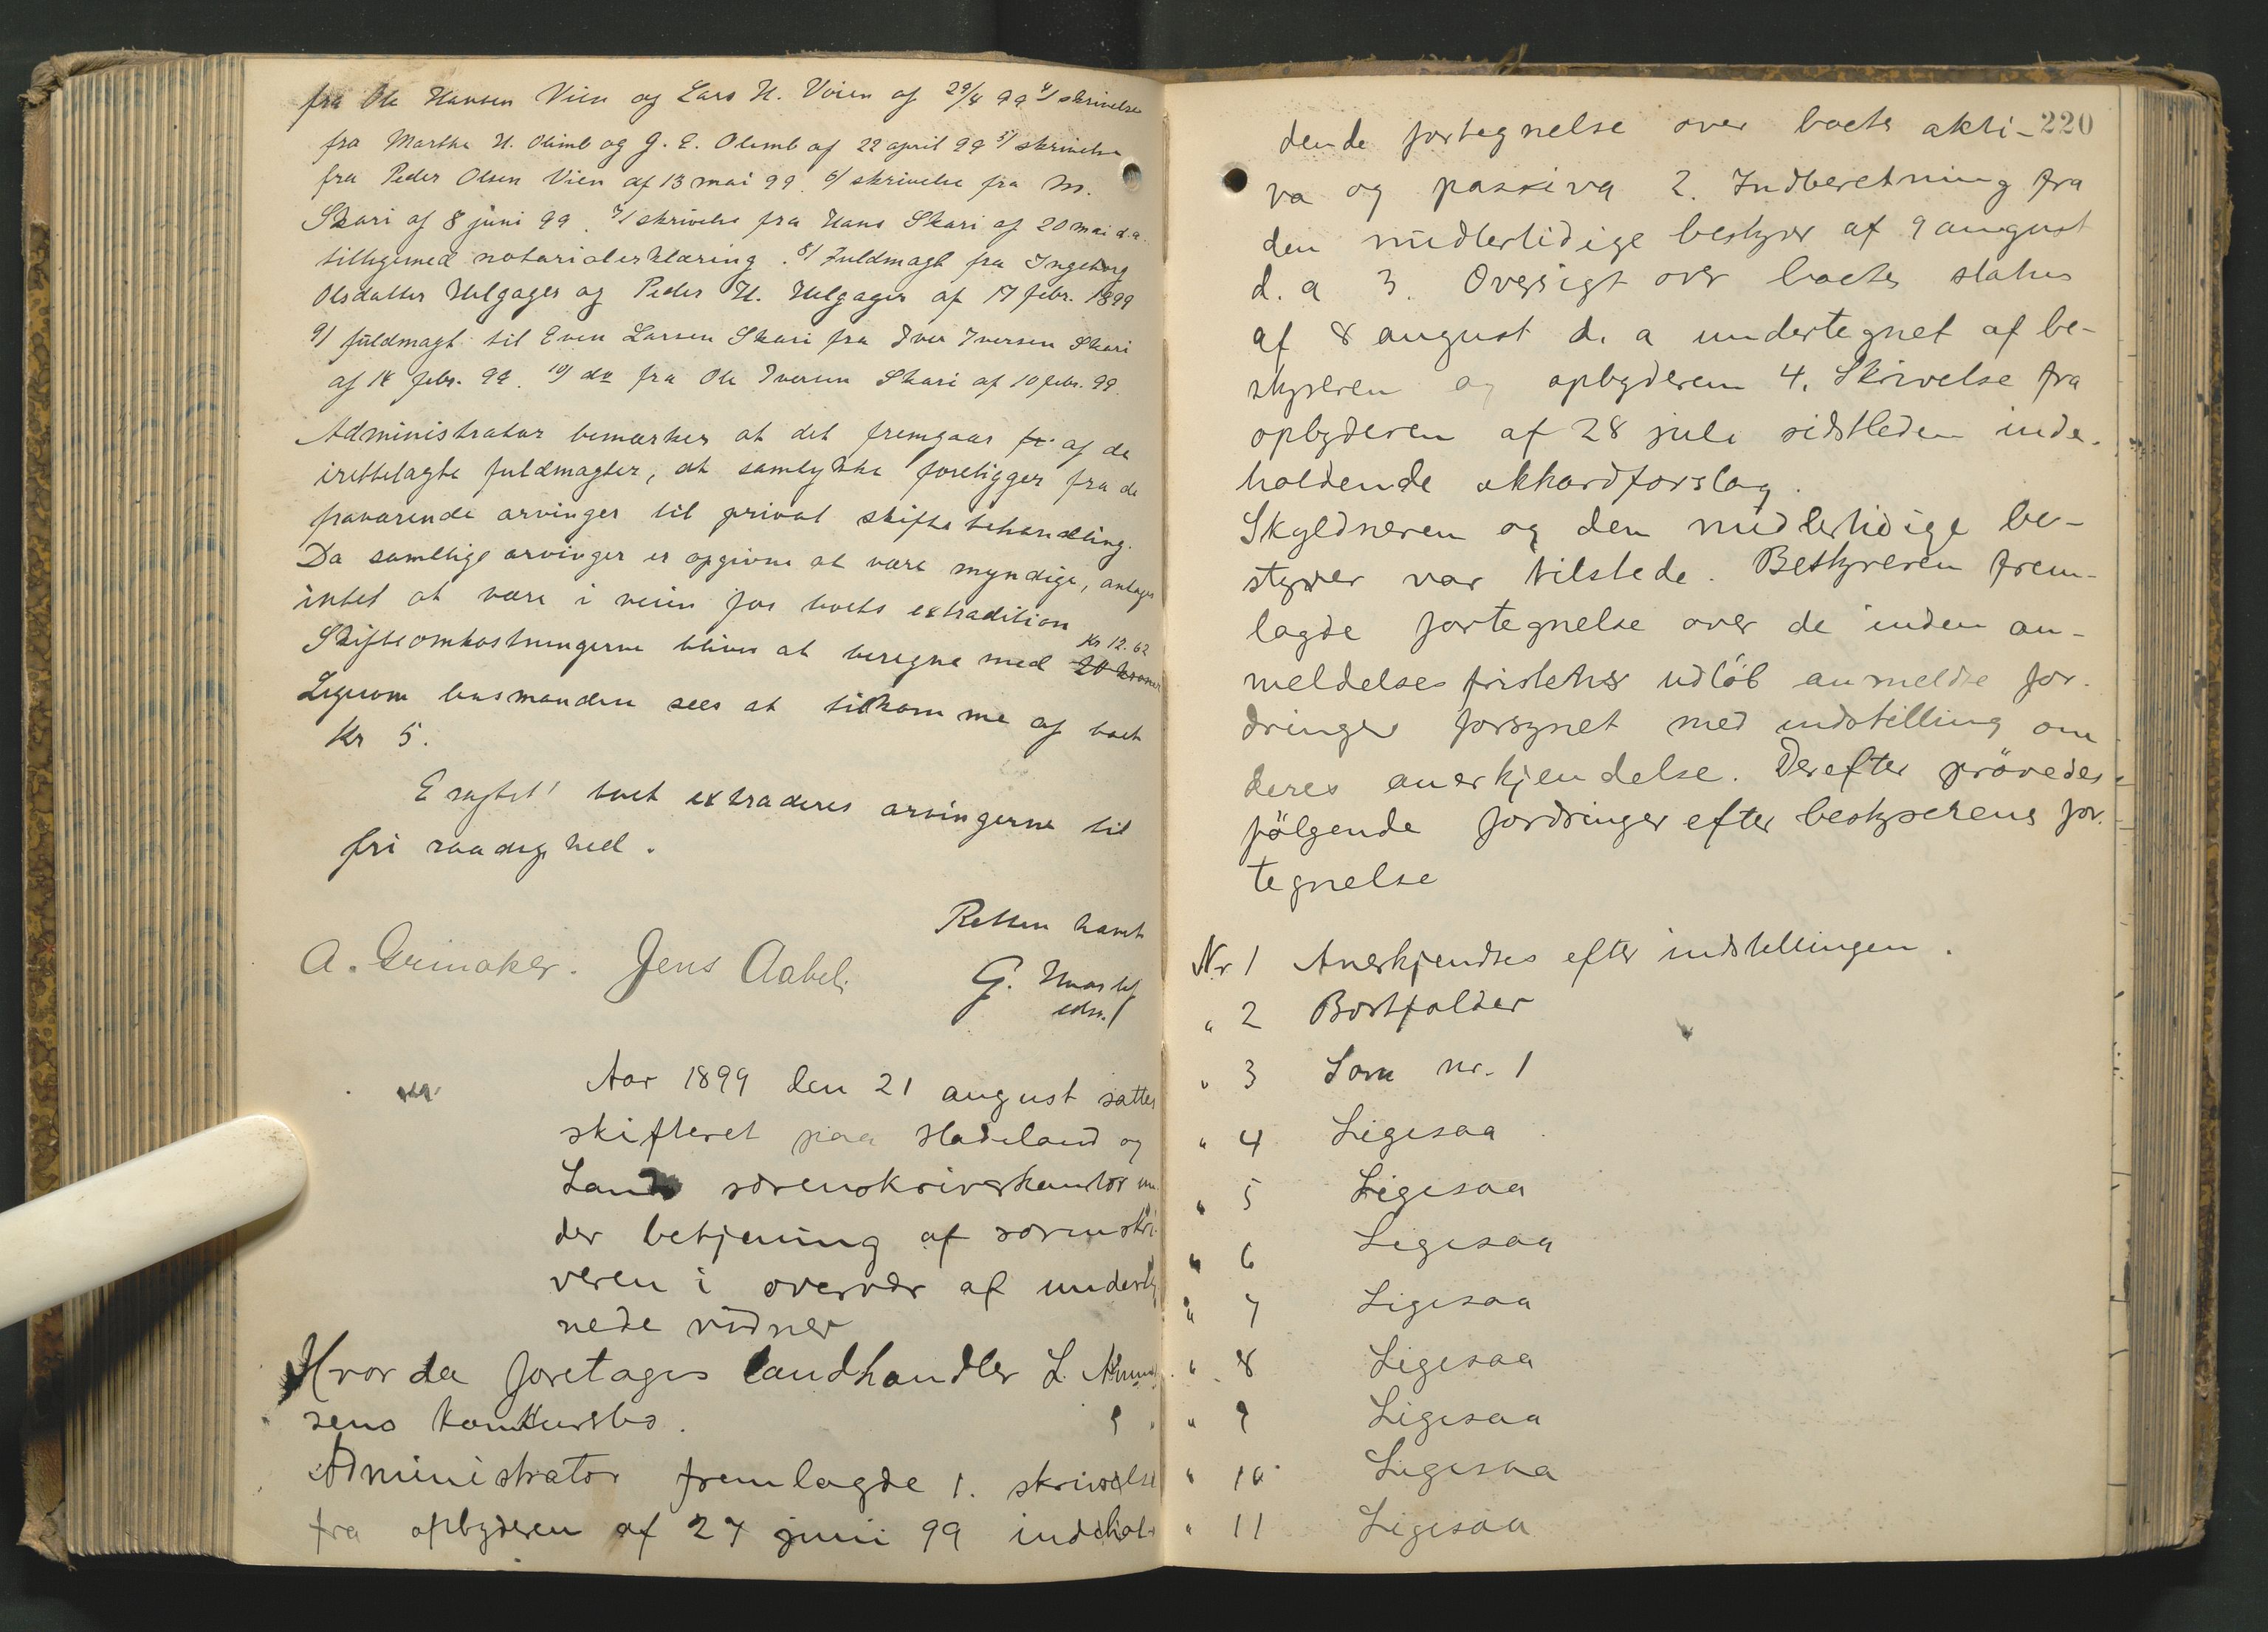 fra Ole Hansen Vien og Lars H. Voien af 29/4 99 4/ skrivelse
fra Marthe H. Olimb og G. E. Olimb af 22 april 99 5/ skrivelse
fra Peder Olsen Vien af 13 mai 99. 6/ skrivelse fra M.
Skari af 8 juni 99. 7/ skrivelse fra Hans Skari af 20 mai d.a.
tilligemed notarialerklæring. 8/ Fuldmagt fra Ingeborg
Olsdatter Helgager og Peder H. Helgager af 17 febr. 1899
9/ fuldmagt til Even Larsen Skari fra Iver Iversen Skari
af 18 febr. 99. 10/ do fra Ole Iversen Skari af 10 febr. 99.
Administrator bemærker at det fremgaar fr af de
irettelagte fuldmagter, at samtykke foreligger fra de
fraværende arvinger til privat skiftebehandling.
Da samtlige arvinger er opgivne at være myndige, antages
intet at være i veien for boets extradition
Kr 12.62
Skifteomkostningerne bliver at beregne med 20 kroner
Ligesom husmanden sees at tilkomme af boet
Kr 5.
Eragtet! boet extraderes arvingerne til
fri raadighed.
Retten hævet
A. Grinaker. Jens Aabel.
G.
Aar 1899 den 21 august sattes
skifteret paa Hadeland og
Land sorenskriverkontor un-
der betjening af sorenskri-
veren i overvær af underteg
nede vidner
Hvor da foretages landhandler L.
sens konkursbo.
Administrator fremlagde 1. skrivelse
fra opbyderen af 27 juni 99 indehol-
220
dende fortegnelse over boets akti-
va og passiva 2. Indberetning fra
den midlertidige bestyrer af 9 august
d. a 3. Oversigt over boets status
af 8 august d. a undertegnet af be-
styreren og opbyderen 4. Skrivelse fra
opbyderen af 28 juli sidstleden inde-
holdende akkordforslag.
Skyldneren og den midlertidige be-
styrer var tilstede. Bestyreren frem-
lagde fortegnelse over de inden an-
meldelsesfristens udløb anmeldte for-
dringer forsynet med indstilling om
deres anerkjendelse. Derefter prövedes
fölgende fordringer efter bestyrerens for-
tegnelse
Nr 1 Anerkjendtes efter indstillingen.
" 2 Bortfalder
" 3 Som nr. 1
" 4 Ligesaa
" 5 Ligesaa
" 6 Ligesaa
" 7 Ligesaa
" 8 Ligesaa
" 9 Ligesaa
" 10 Ligesaa
" 11 Ligesaa